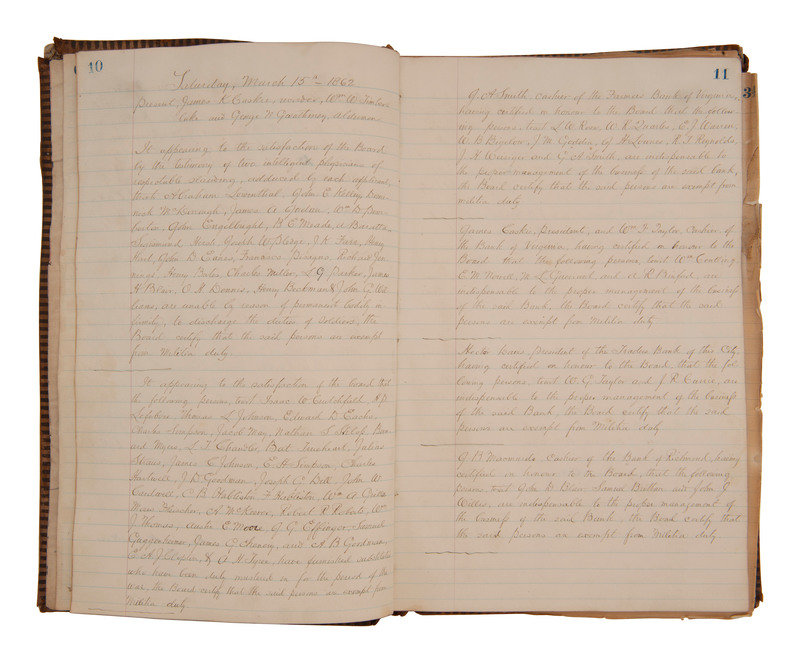 10
Saturday, March 15th 1862
Present, James K Caskie, Wm W Timber
lake and George W Gwathmey, Aldermen
It appearing to the satisfaction of the Board
by the testimony of two intelligent physicians of
respectable standing, adduced by each applicant,
that Abraham Lowenthal, John C Kelley, Dom-
nick McDonough, James A Wm D Bar-
John Engelbught, B E Meade, A Barratta
Hirsh, Joseph W J H Henry
Hirsh, John D Evans, Francisco Richard Jen-
nings, Henry Charles Miller, L G Parker, James
H Blair, O A Dennis, Henry Beckman & John C Wil-
liams, are unable by reason of permanent bodily in-
firmity, to discharge the duties of soldiers, the
Board certify that the said persons are exempt
from Militia duty.
It appearing to the satisfaction of the board that
the following persons, towit Isaac W Cutchfield, A P
Thomas L Johnson, Edward D Eacho,
Charles Simpson, Jacob May, Nathan S Bern-
ard Myers, L F Chandler, Bat Julius
Straus, James E Johnson, E H Simpson, Charles
Hartwell, J D Goodman, Joseph C Dell, John W.
Cardwell, C B Habliston, F Habliston, Wm A
Meier Fleisher, A McKeever, Robert R Roberts, Wm
J Thomas, E Moore, G G Effinger, Samuel
James C Chaney, and A B Goodman,
E A J & A H have furnished substitutes
who have been duly mustered in for the period of the
war, the Board certify that the said persons are exempt from
Militia duty
11
G A Smith cashier of the Farmers Bank of Virginia,
having certified in honour to the Board that the follow-
ing persons, towit L W Rose, W R Quarles, E J Warren,
W C Bigelow, J M Goddin, G H Lounes, R F Reynolds,
J A Weisiger and G A Smith, are indispensable to
the proper management of the business of the said bank,
the Board certify that the said persons are exempt from
militia duty
James Caskie, president, and Wm F Taylor, Cashier of
the Bank of Virginia, having certified in honour to the
Board that the following persons, towit Wm Cowling
E M Newell, M L and A R Binford, are
indispensable to the proper management of the business
of the said Bank, the Board certify that the said
persons are exempt from Militia duty
Hector Davis, president of the Traders Bank of this City,
having certified in honour to the Board, that the fol-
lowing persons, towit W G Taylor and J R Currie, are
indispensable to the proper management of the business
of the said Bank, the Board certify that the said
persons are exempt from Militia duty
G B Macmurdo cashier of the Bank of Richmond, having
certified in honour to the Board, that the following
persons, towit John D Blair, Samuel Britton and John J
Willis, are indispensable to the proper management of
the business of the said Bank, the Board certify that
the said persons are exempt from Militia duty
3